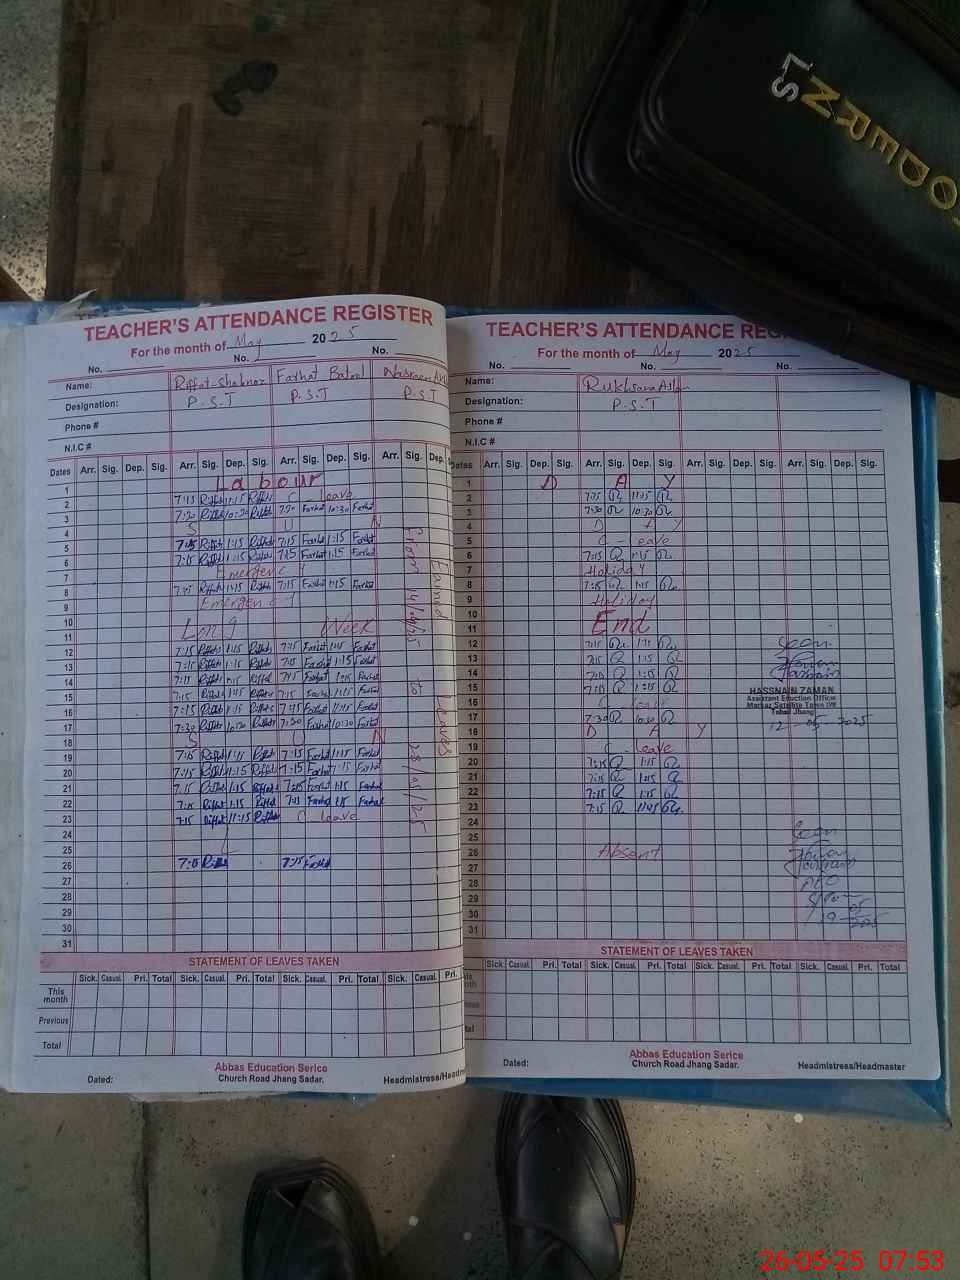 MODERN
LS
TEACHER'S ATTENDANCE REGISTER
For the month of May 2025
No. No. No.
Name: Riffat Shahnaz Farhat Batool Nasreen
Designation: P.S.T P.S.T P.S.T
Phone #
N.I.C #
Dates Arr. Sig. Dep. Sig. Arr. Sig. Dep. Sig. Arr. Sig. Dep. Sig. Arr. Sig. Dep.
1 Labour
2 7:15 Riffat 11:15 Riffat C_leave
3 7:30 Riffat 10:30 Riffat 7:30 Farhat 10:30 Farhat
4 S U N
5 7:15 Riffat 1:15 Riffat 7:15 Farhat 1:15 Farhat
6 7:15 Riffat 1:15 Riffat 7:15 Farhat 1:15 Farhat
7 Emergency
8 7:15 Riffat 1:15 Riffat 7:15 Farhat 1:15 Farhat
9 Emergency
10
11 Long Week
12 7:15 Riffat 1:15 Riffat 7:15 Farhat 1:15 Farhat
13 7:15 Riffat 1:15 Riffat 7:15 Farhat 1:15 Farhat
14 7:15 Riffat 1:15 Riffat 7:15 Farhat 1:15 Farhat
15 7:15 Riffat 1:15 Riffat 7:15 Farhat 1:15 Farhat
16 7:15 Riffat 1:15 Riffat 7:15 Farhat 11:45 Farhat
17 7:30 Riffat 10:30 Riffat 7:30 Farhat 10:30 Farhat
18 S U N
19 7:15 Riffat 1:15 Riffat 7:15 Farhat 1:15 Farhat
20 7:15 Riffat 1:15 Riffat 7:15 Farhat 1:15 Farhat
21 7:15 Riffat 1:15 Riffat 7:15 Farhat 1:15 Farhat
22 7:15 Riffat 1:15 Riffat 7:15 Farhat 1:15 Farhat
23 7:15 Riffat 11:15 Riffat C_leave
24
25
26 7:15 Riffat 7:15 Farhat
27
28
29
30
31
Earned Leaves
From 14/04/25 to 28/05/25
STATEMENT OF LEAVES TAKEN
Sick. Casual. Pri. Total Sick. Casual. Pri. Total Sick. Casual. Pri. Total Sick. Casual. Pri.
This month
Previous
Total
Abbas Education Serice
Dated: Church Road Jhang Sadar. Headmistress/Headm
TEACHER'S ATTENDANCE REG
For the month of May 2025
No. No. No.
Name: Rukhsana Aslam
Designation: P.S.T
Phone #
N.I.C #
Dates Arr. Sig. Dep. Sig. Arr. Sig. Dep. Sig. Arr. Sig. Dep. Sig. Arr. Sig. Dep. Sig.
1 D A Y
2 7:15 11:15
3 7:30 10:30
4 D A Y
5 C_leave
6 7:15 1:15
7 Holiday
8 7:15 1:15
9 Holiday
10 End
11
12 7:15 1:15
13 7:15 1:15
14 7:15 1:15
15 7:15 1:15
16 C leave
17 7:30 10:30
18 D A Y
19 C_leave
20 7:15 1:15
21 7:15 1:15
22 7:15 1:15
23 7:15 11:45
24
25
26 Absent
27
28
29
30
31
Seen
HASSNAIN ZAMAN
Assistant Eduction Officer
Markaz Satellite Town (W)
Tehsil Jhang
12-05-2025
Seen
AEO
STATEMENT OF LEAVES TAKEN
Sick. Casual. Pri. Total Sick. Casual. Pri. Total Sick. Casual. Pri. Total Sick. Casual. Pri. Total
Abbas Education Serice
Dated: Church Road Jhang Sadar. Headmistress/Headmaster
26-05-25 07:53